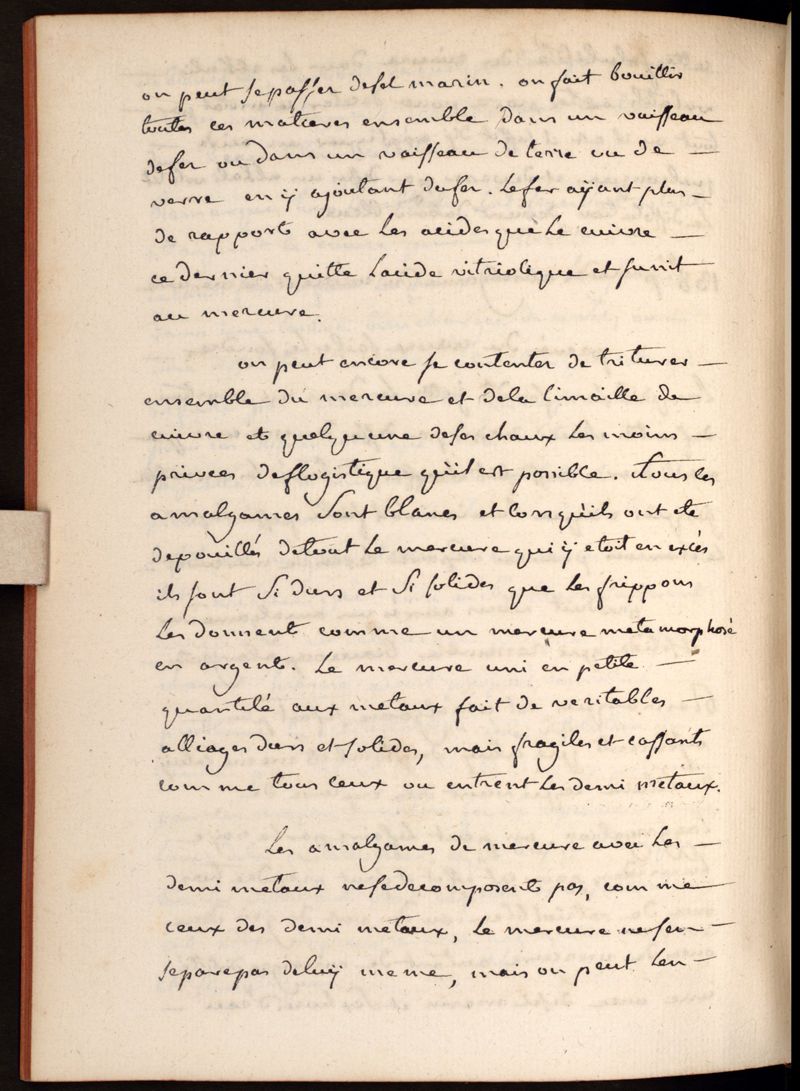 on peut se passer de sel marin. on fait bouillir
toutes ces matieres ensemble dans un vaisseau
de fer ou dans un vaisseau de terre ou de —
verre en ÿ ajoutant du fer. Le fer aÿant plus —
de rapports avec les acides que le cuivre —
ce dernier quitte l'acide vitriolique et s'unit
au mercure.
on peut encore se contenter de triturer —
ensemble du mercure et de la limaille de
cuivre et quelqu'une de ses chaux les moins —
privées de flogistique qu'il est possible. tous les
amalgames sont blancs et lorsqu'ils ont eté
depoüillés de tout le mercure qui ÿ etoit en excès
ils sont si durs et si solides que les frippons
les donnent comme un mercure metamorphosé
en argent. Le mercure uni en petite —
quantité aux metaux fait de veritables —
alliages durs et solides, mais fragiles et cassants
comme tous ceux ou entrent les demi metaux.
Les amalgames de mercure avec les —
demi metaux ne se decomposent pas, comme
ceux des demi metaux, le mercure ne s'en —
separe pas de luÿ meme, mais on peut l'en —